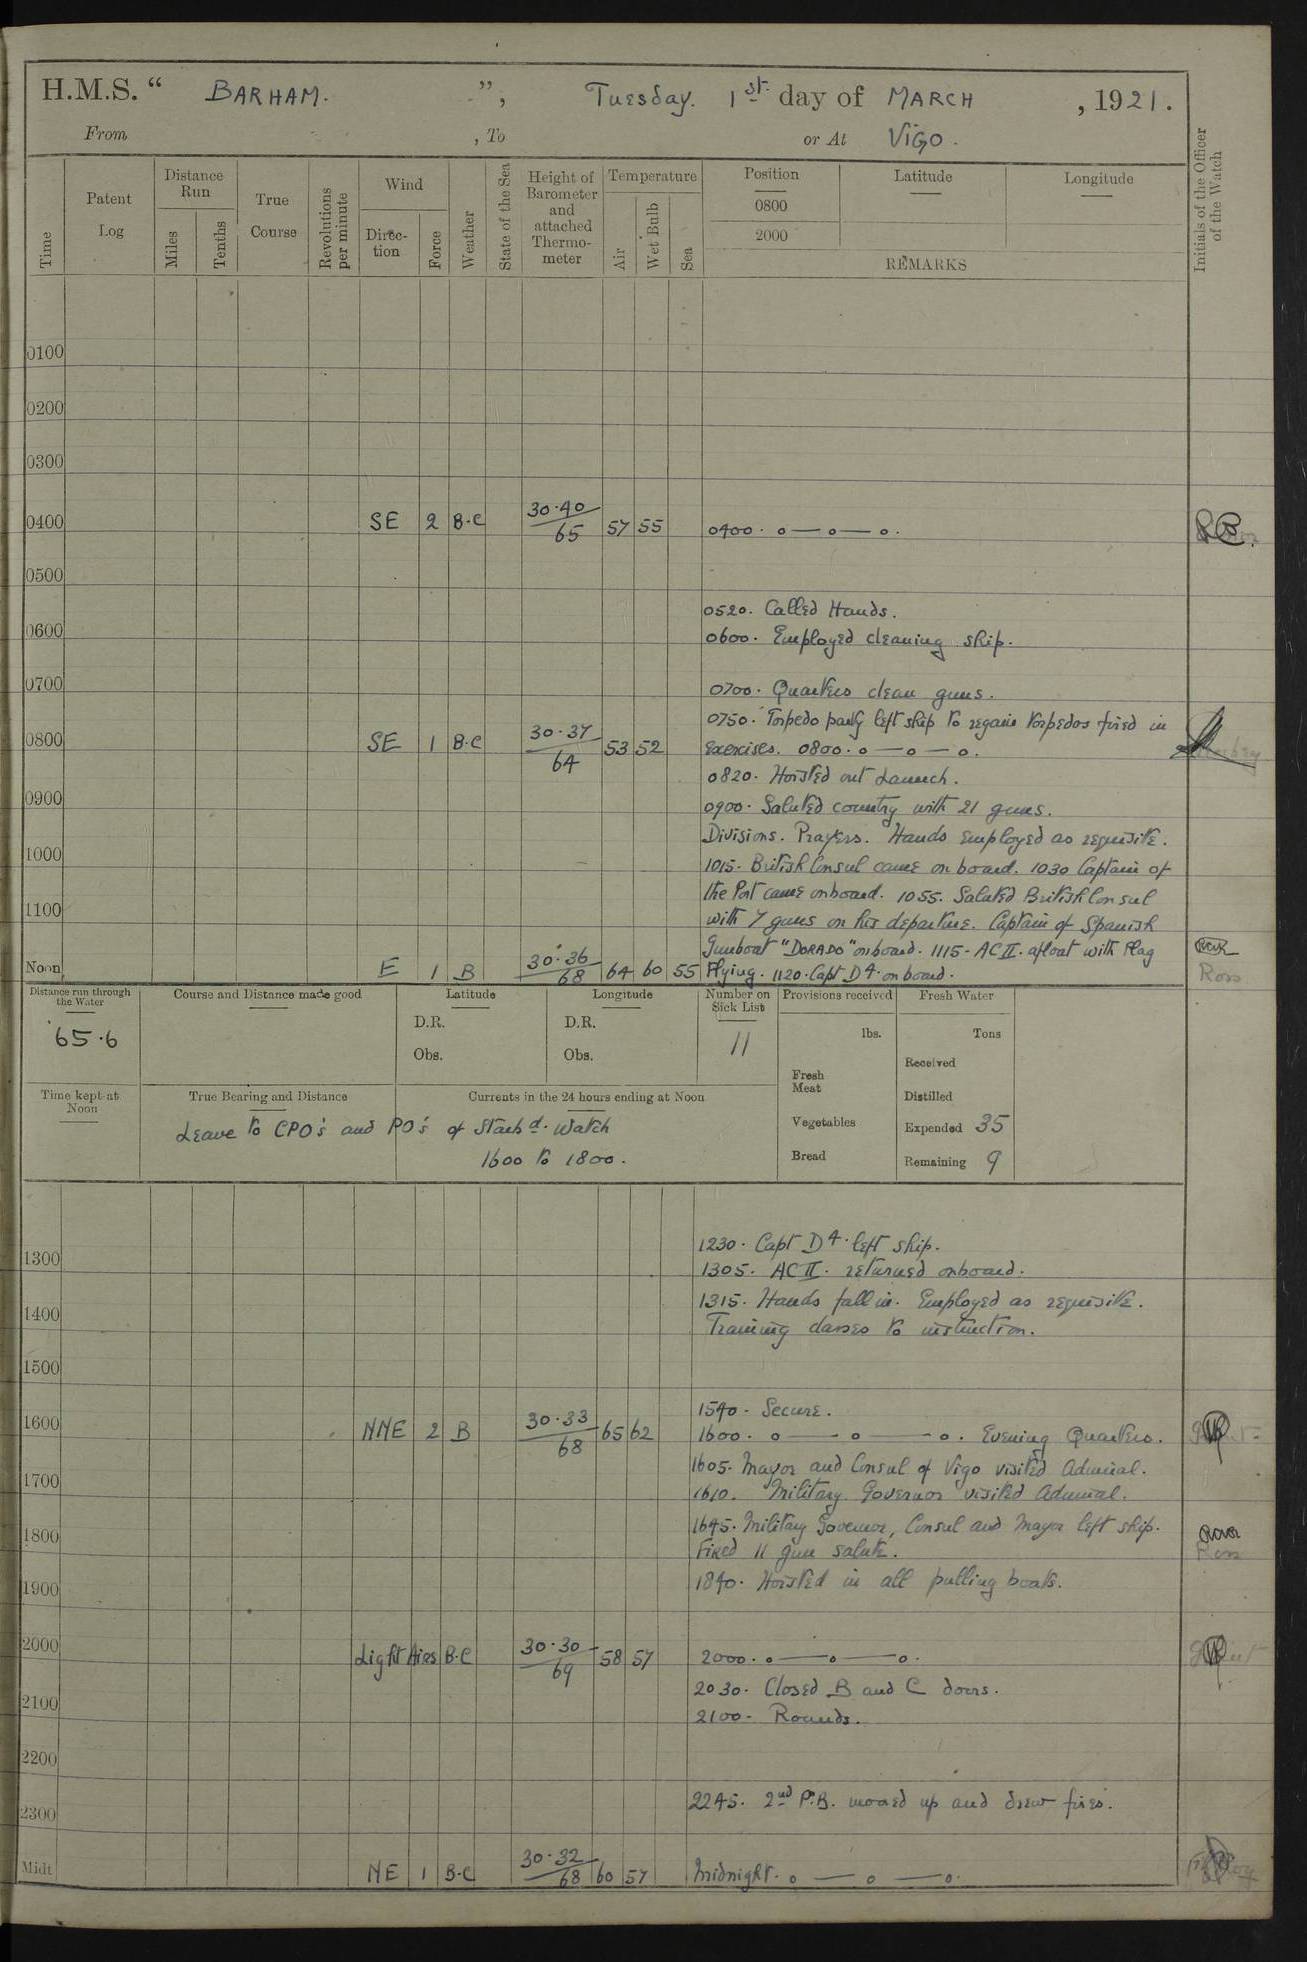 H.M.S. “ BARHAM. ”, Tuesday. 1st day of MARCH , 1921.
From , To or At VIGO.
Time
Patent Log
Distance Run
Miles
Tenths
True Course
Revolutions per minute
Wind
Direc-tion
Force
Weather
State of the Sea
Height of Barometer and attached Thermo-meter
Temperature
Air
Wet Bulb
Sea
Position
0800
2000
Latitude
Longitude
REMARKS
Initials of the Officer of the Watch
0100
0200
0300
0400 SE 2 B.C 30.40/65 57 55 0400. o — o — o.
0500
0520. Called Hands.
0600
0600. Employed cleaning ship.
0700
0700. Quarters clean guns.
0750. Torpedo party left ship to regain torpedos fired in
0800 SE 1 B.C 30.37/64 53 52 Exercises. 0800. o — o — o.
0820. Hoisted out Launch.
0900
0900. Saluted country with 21 guns.
Divisions. Prayers. Hands employed as requisite.
1000
1015. British Consul came on board. 1030 Captain of
the Port came onboard. 1055. Saluted British Consul
1100
with 7 guns on his departure. Captain of Spanish
Gunboat "DORADO" onboard. 1115. AC II. afloat with Flag
Noon E 1 B 30.36/68 64 60 55 Flying. 1120. Capt D4. onboard.
Ross
Distance run through the Water
65.6
Course and Distance made good
Latitude
D.R.
Obs.
Longitude
D.R.
Obs.
Number on Sick List
11
Provisions received
lbs.
Fresh Meat
Vegetables
Bread
Fresh Water
Tons
Received
Distilled
Expended 35
Remaining 9
Time kept at Noon
True Bearing and Distance
Currents in the 24 hours ending at Noon
Leave to CPO's and PO's of Starbd. Watch
1600 to 1800.
1230. Capt D4. left ship.
1300
1305. AC II. returned onboard.
1315. Hands fall in. Employed as requisite.
1400
Training classes to instruction.
1500
1540. Secure.
1600 NNE 2 B 30.33/68 65 62 1600. o — o — o. Evening Quarters.
1605. Mayor and Consul of Vigo visited Admiral.
1700
1610. Military Governor visited Admiral.
1645. Military Governor, Consul and Mayor left ship.
1800
Fired 11 gun salute.
Ross
1840. Hoisted in all pulling boats.
1900
2000 Light Airs B.C 30.30/69 58 57 2000. o — o — o.
2030. Closed B and C doors.
2100
2100. Rounds.
2200
2245. 2nd P.B. moored up and drew fires.
2300
Midt NE 1 B.C 30.32/68 60 57 Midnight. o — o — o.